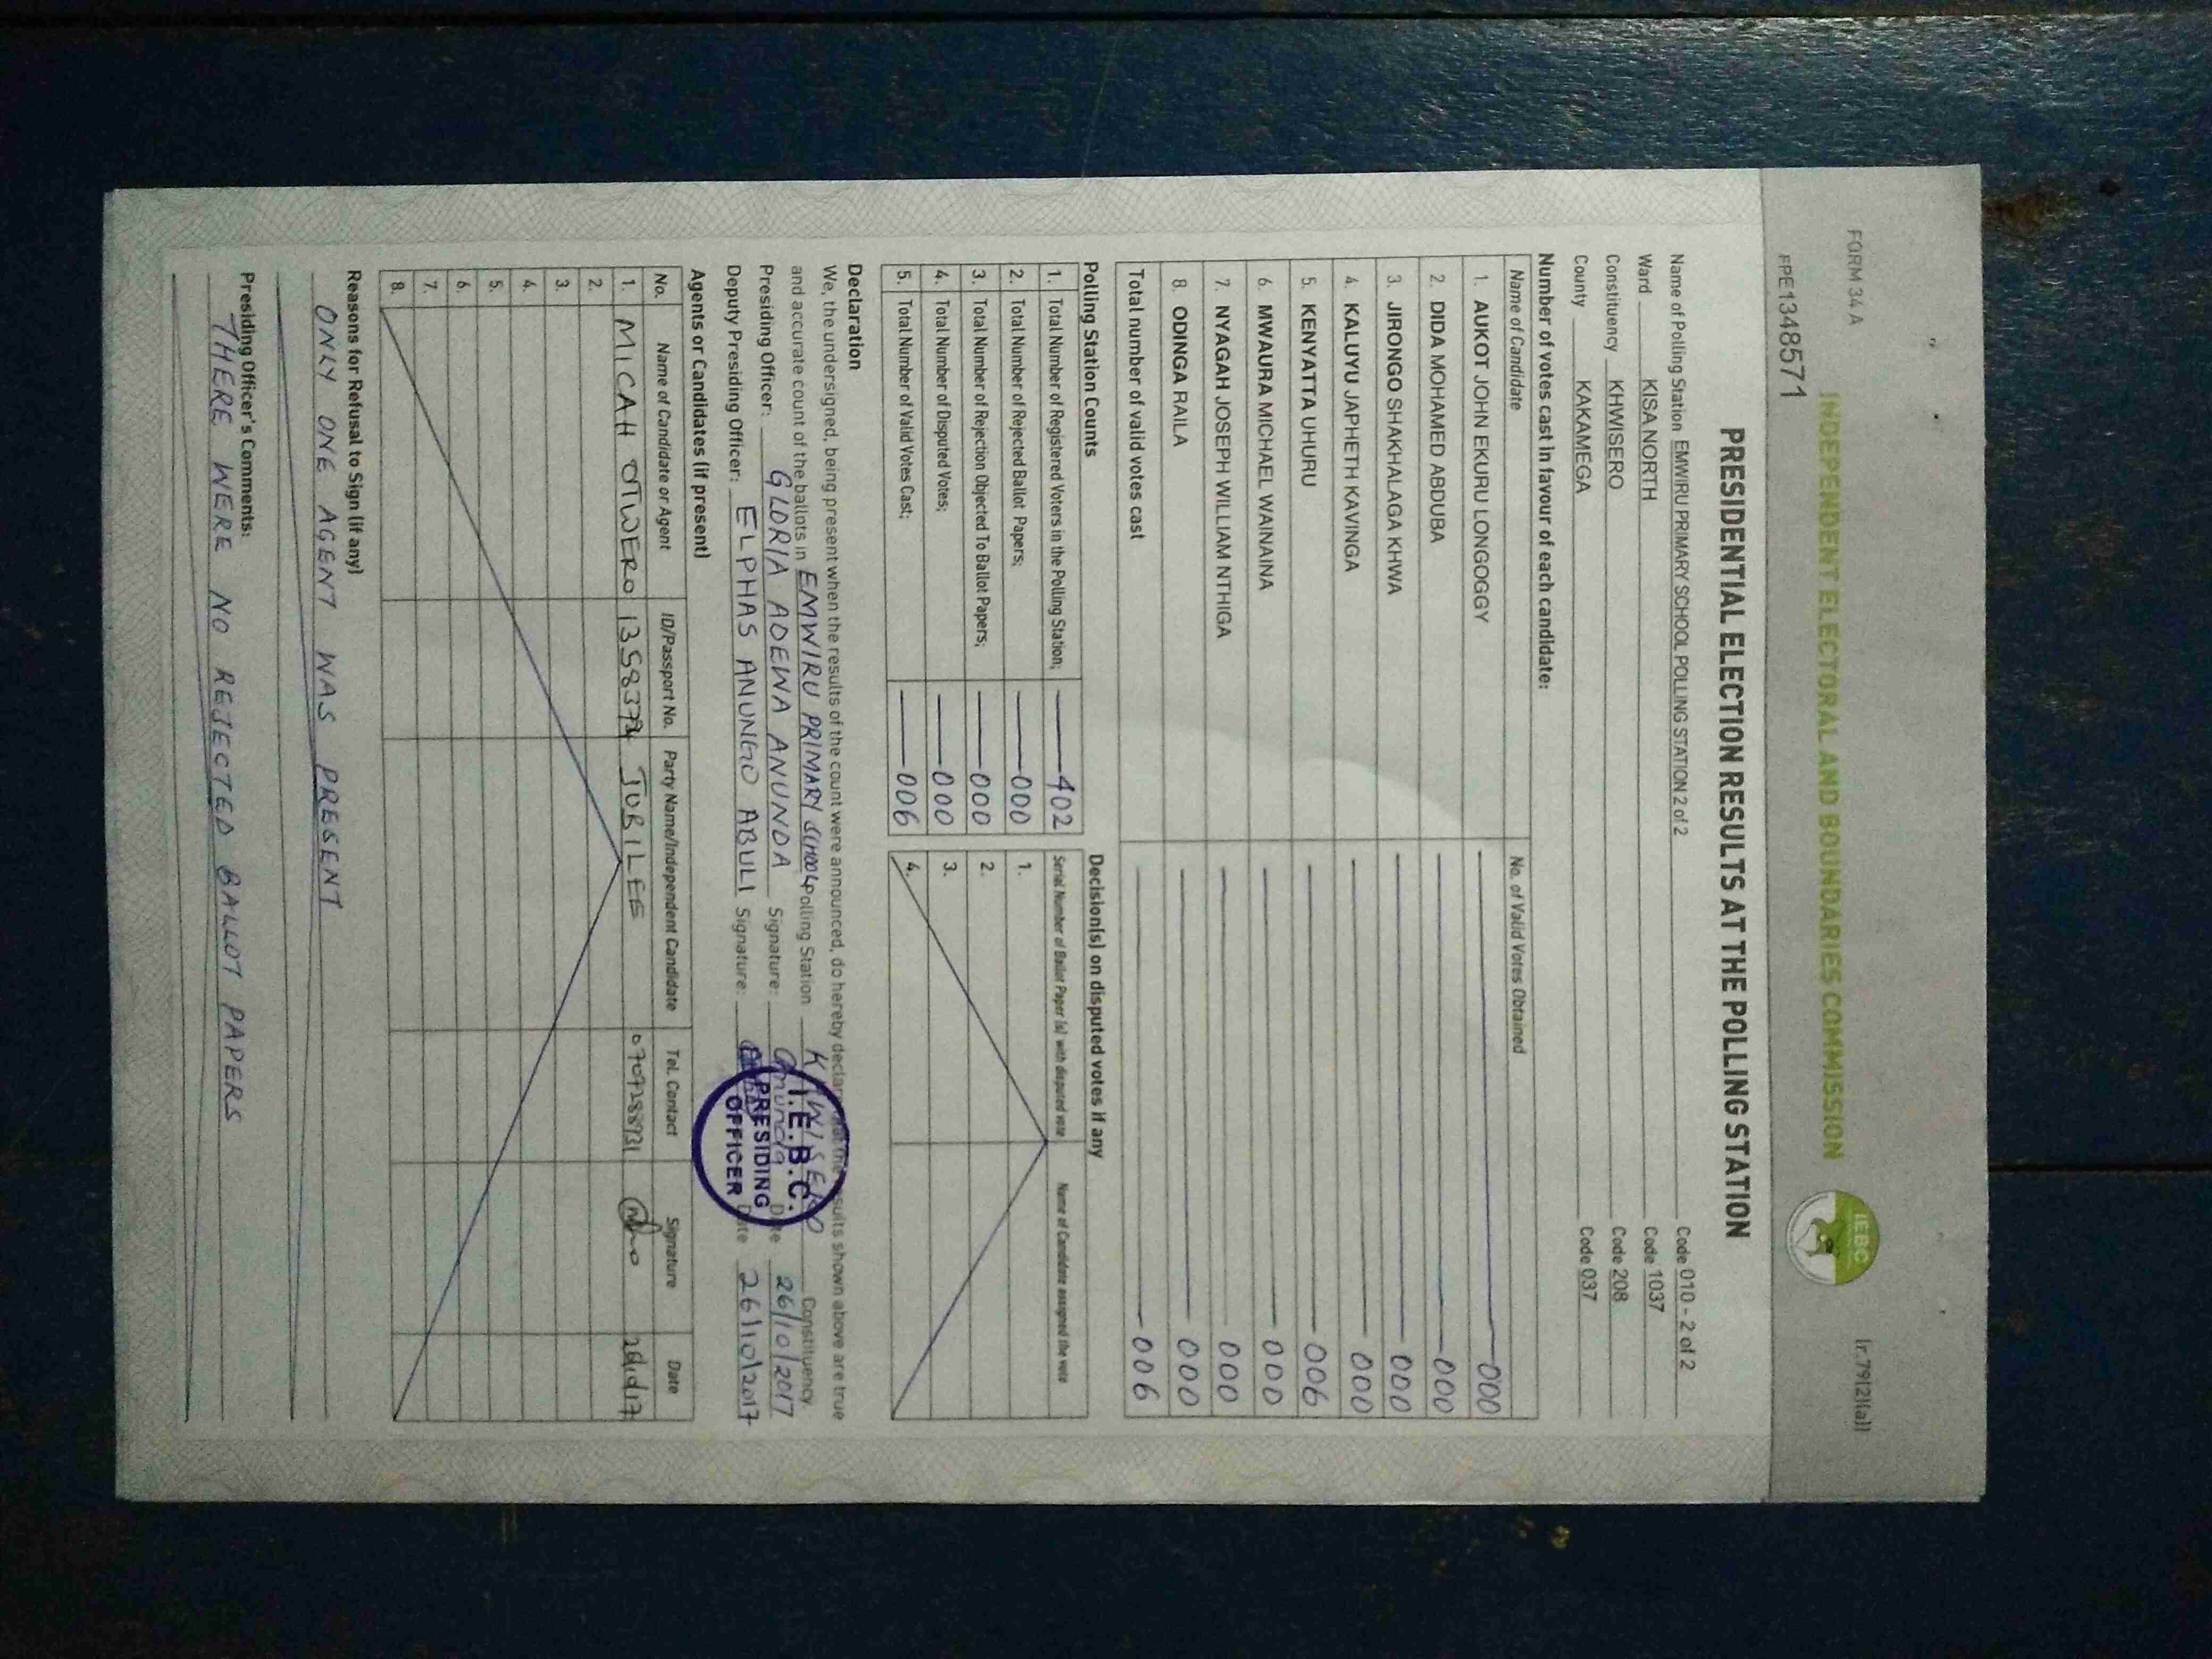 FORM 34 A
(r.79(2)(a))
INDEPENDENT ELECTORAL AND BOUNDARIES COMMISSION
IEBC
FPE1348571
PRESIDENTIAL ELECTION RESULTS AT THE POLLING STATION
Name of Polling Station EMWIRU PRIMARY SCHOOL POLLING STATION 2 of 2 Code 010 - 2 of 2
Ward KISA NORTH Code 1037
Constituency KHWISERO Code 208
County KAKAMEGA Code 037
Number of votes cast in favour of each candidate:
Name of Candidate No. of Valid Votes Obtained
1. AUKOT JOHN EKURU LONGOGGY 000
2. DIDA MOHAMED ABDUBA 000
3. JIRONGO SHAKHALAGA KHWA 000
4. KALUYU JAPHETH KAVINGA 000
5. KENYATTA UHURU 006
6. MWAURA MICHAEL WAINAINA 000
7. NYAGAH JOSEPH WILLIAM NTHIGA 000
8. ODINGA RAILA 000
Total number of valid votes cast 006
Polling Station Counts Decision(s) on disputed votes if any
1. Total Number of Registered Voters in the Polling Station; 402 Serial Number of Ballot Paper (s) with disputed vote Name of Candidate assigned the vote
2. Total Number of Rejected Ballot Papers; 000 1.
3. Total Number of Rejection Objected To Ballot Papers; 000 2.
4. Total Number of Disputed Votes; 000 3.
5. Total Number of Valid Votes Cast; 006 4.
Declaration
We, the undersigned, being present when the results of the count were announced, do hereby declare that the results shown above are true
and accurate count of the ballots in EMWIRU PRIMARY SCHOOL Polling Station KHWISERO Constituency.
Presiding Officer: GLORIA ADEWA ANUNDA Signature: Anunda Date 26/10/2017
Deputy Presiding Officer: ELPHAS ANUNGO ABULI Signature: Date 26/10/2017
I.E.B.C.
PRESIDING
OFFICER
Agents or Candidates (if present)
No. Name of Candidate or Agent ID/Passport No. Party Name/Independent Candidate Tel. Contact Signature Date
1. MICAH OTWERO JUBILEE 0709288931
2.
3.
4.
5.
6.
7.
8.
Reasons for Refusal to Sign (if any)
ONLY ONE AGENT WAS PRESENT
Presiding Officer's Comments:
THERE WERE NO REJECTED BALLOT PAPERS